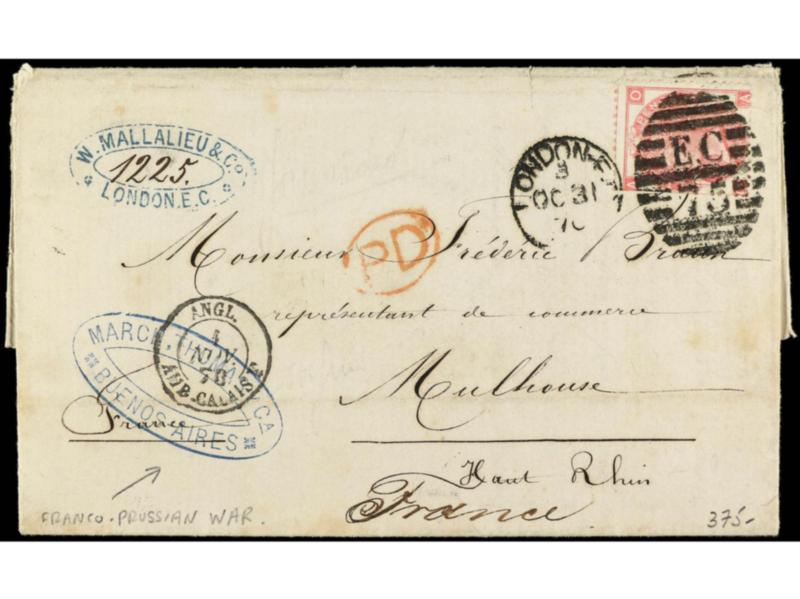 W. MALLALIEU & Co
1225.
LONDON. E.C.
LONDON-E.C
3
OC 31
70
E.C
75
O
A
PD
Monsieur Frédéric Braun
représentant de commerce
Mulhouse
Haut Rhin
France
ANGL.
1
NOV.
70
AMB. CALAIS
MARCH, & CA
BUENOS AIRES
France
FRANCO-PRUSSIAN WAR.
375-